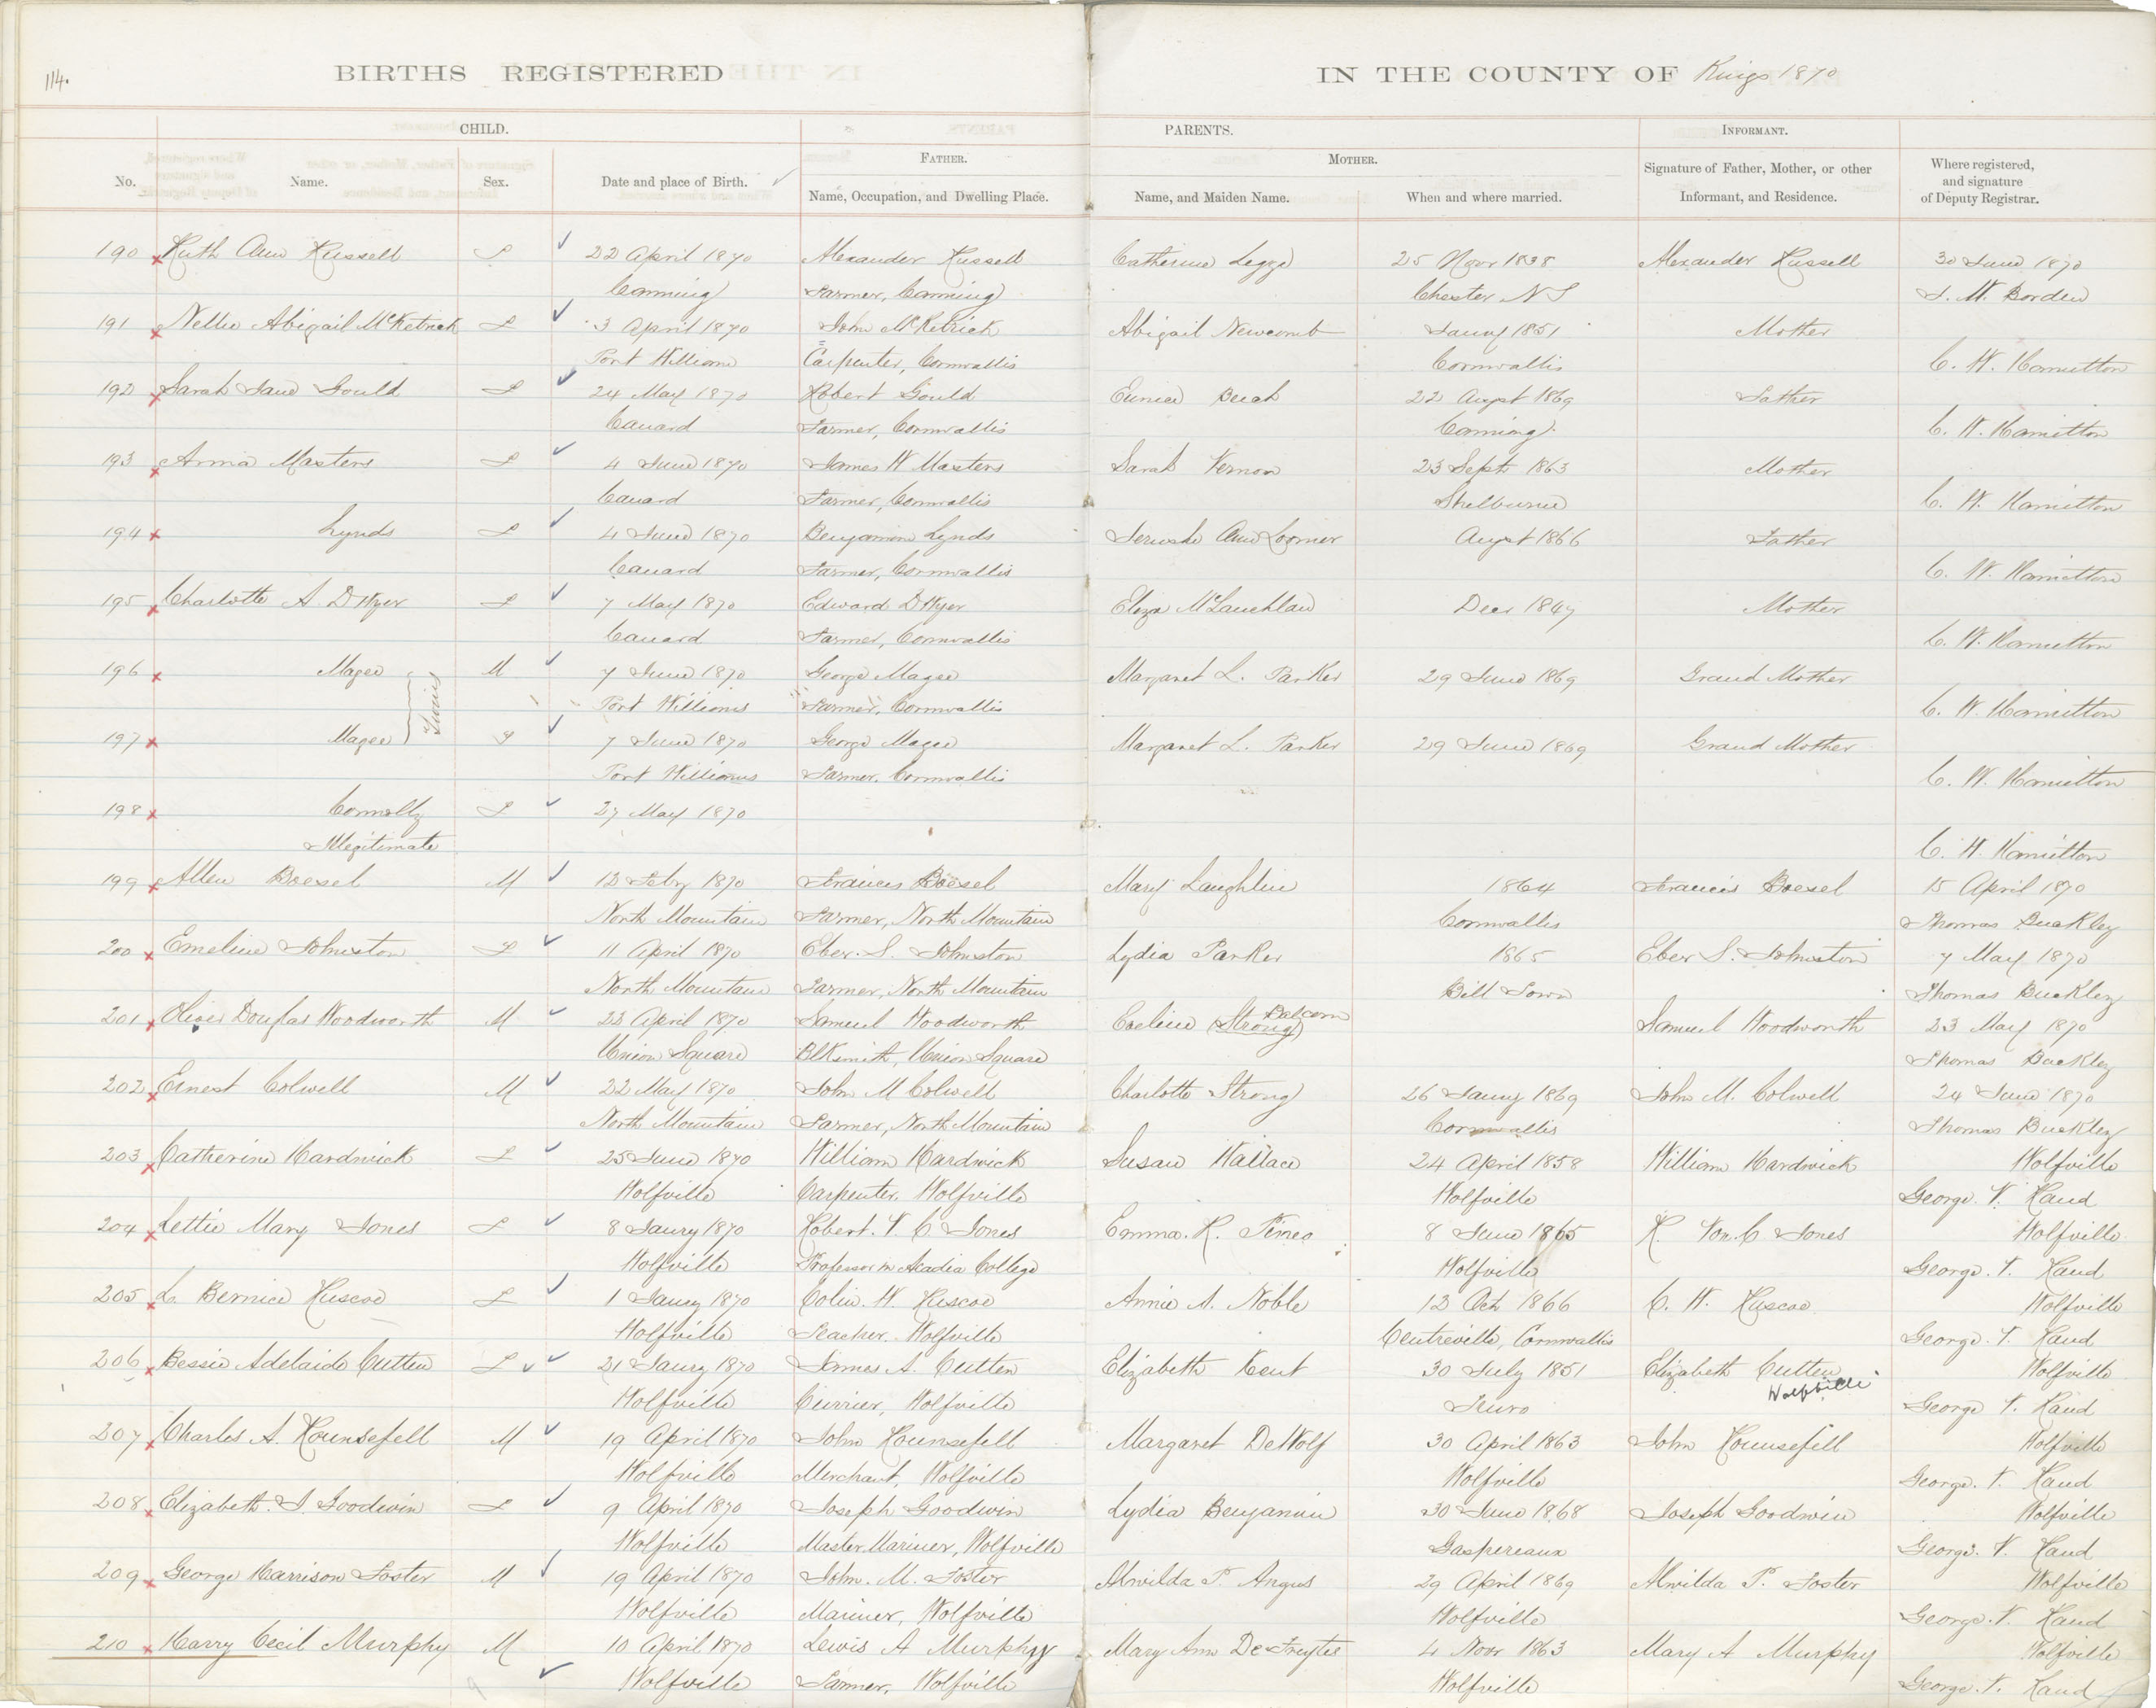 114.
BIRTHS REGISTERED IN THE COUNTY OF Kings 1870
CHILD. PARENTS. INFORMANT.
FATHER. MOTHER.
No. Name. Sex. Date and place of Birth. Name, Occupation, and Dwelling Place. Name, and Maiden Name. When and where married. Signature of Father, Mother, or other Informant, and Residence. Where registered, and signature of Deputy Registrar.
190 Ruth Ann Russell F 22 April 1870 Alexander Russell Catherine Legge 25 Novr 1838 Alexander Russell 30 June 1870
Canning Farmer, Canning Chester N S J. W. Borden
191 Nellie Abigail McKetrick F 3 April 1870 John McKetrick Abigail Newcomb Jany 1851 Mother
Port William Carpenter, Cornwallis Cornwallis C. W. Hamilton
192 Sarah Jane Gould F 24 May 1870 Robert Gould Eunice 22 Augst 1869 Father
Canard Farmer, Cornwallis Canning C. W. Hamilton
193 Anna Masters F 4 June 1870 James W Masters Sarah Vernon 23 Sept 1863 Mother
Canard Farmer, Cornwallis Shelburne C. W. Hamilton
194 Lynds F 4 June 1870 Benjamin Lynds Jerusha Ann Loomer Augst 1866 Father
Canard Farmer, Cornwallis C. W. Hamilton
195 Charlotte A. DWyer F 7 May 1870 Edward DWyer Eliza McLauchlan Decr 1847 Mother
Canard Farmer, Cornwallis C. W. Hamilton
196 Magee M 7 June 1870 George Magee Margaret L. Parker 29 June 1869 Grand Mother
Twins
Port Williams Farmer, Cornwallis C. W. Hamilton
197 Magee F 7 June 1870 George Magee Margaret L. Parker 29 June 1869 Grand Mother
Port Williams Farmer, Cornwallis C. W. Hamilton
198 Connolly F 27 May 1870
Illegitimate C. W. Hamilton
199 Allen Boexel M 12 Feby 1870 Francis Boexel Mary Laughlin 1864 Francis Boexel 15 April 1870
North Mountain Farmer, North Mountain Cornwallis Thomas Buckley
200 Emeline Johnston F 11 April 1870 Eber. S. Johnston Lydia Parker 1865 Eber S. Johnston 7 May 1870
North Mountain Farmer, North Mountain Bill Town Thomas Buckley
201 Oliver Douglas Woodworth M 22 April 1870 Samuel Woodworth Eveline (Strong) Balcom Samuel Woodworth 23 May 1870
Union Square Blksmith, Union Square Thomas Buckley
202 Ernest Colwell M 22 May 1870 John M Colwell Charlotte Strong 26 Jany 1869 John M. Colwell 24 June 1870
North Mountain Farmer, North Mountain Cornwallis Thomas Buckley
203 Catherine Hardwick F 25 June 1870 William Hardwick Susan Wallace 24 April 1858 William Hardwick Wolfville
Wolfville Carpenter, Wolfville Wolfville George. V. Rand
204 Lettie Mary Jones F 8 Jany 1870 Robert. V. C Jones Emma. R. Pineo 8 June 1865 R Von. C Jones Wolfville
Wolfville Professor in Acadia College Wolfville George. V. Rand
205 L. Bernice Ruscoe F 1 Jany 1870 Colin. W. Ruscoe Annie A. Noble 12 Oct 1866 C. W. Ruscoe Wolfville
Wolfville Teacher. Wolfville Centreville, Cornwallis George. V. Rand
206 Bessie Adelaide Cutten F 21 Jany 1870 James A. Cutten Elizabeth Kent 30 July 1851 Elizabeth Cutten Wolfville
Wolfville
Wolfville Currier, Wolfville Truro George V. Rand
207 Charles A. Hounsefell M 19 April 1870 John Hounsefell Margaret DeWolf 30 April 1863 John Hounsefell Wolfville
Wolfville Merchant, Wolfville Wolfville George. V. Rand
208 Elizabeth. J. Goodwin F 9 April 1870 Joseph Goodwin Lydia Benjamin 30 June 1868 Joseph Goodwin Wolfville
Wolfville Master Mariner, Wolfville Gaspereaux George. V. Rand
209 George Harrison Foster M 19 April 1870 John. M. Foster Alwilda P. Angus 29 April 1869 Alwilda P. Foster Wolfville
Wolfville Mariner, Wolfville Wolfville George. V. Rand
210 Harry Cecil Murphy M 10 April 1870 Lewis A Murphy Mary Ann DeFreytes 4 Novr 1863 Mary A Murphy Wolfville
Wolfville Farmer, Wolfville Wolfville George. V. Rand